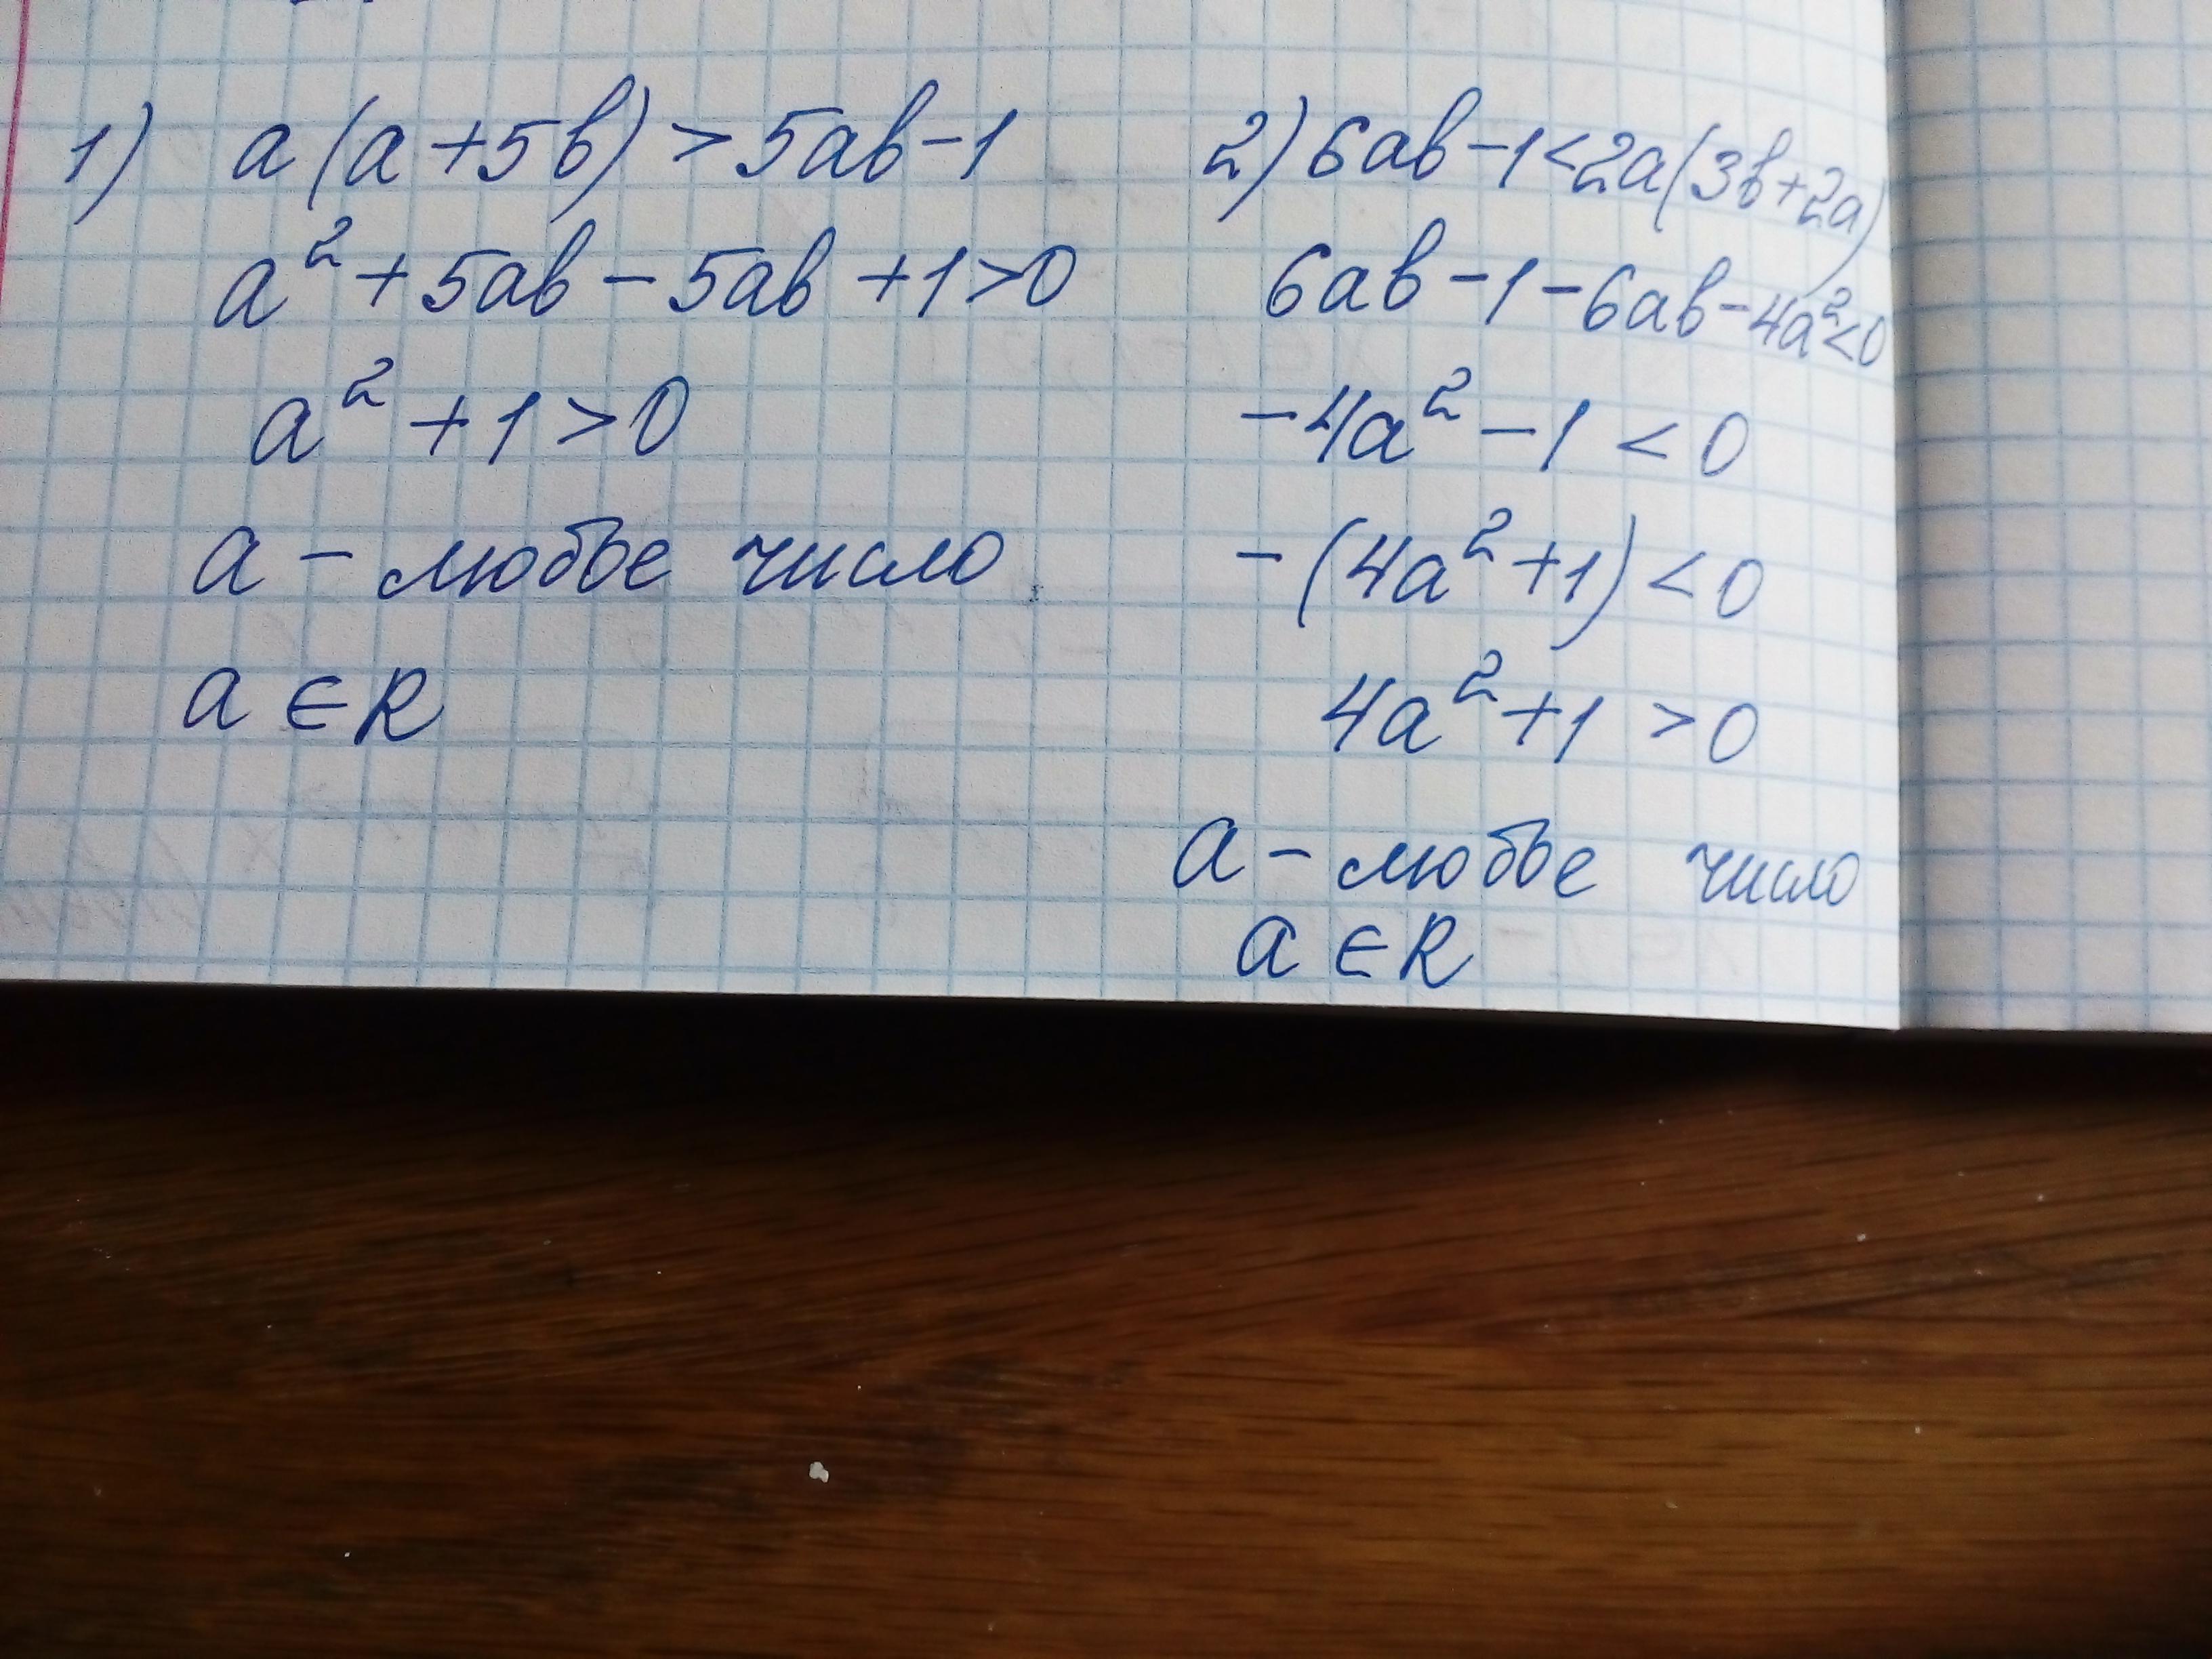 1) a(a+5b)>5ab-1
a²+5ab-5ab+1>0
a²+1>0
a - любое число
a ∈ R
2) 6ab-1<2a(3b+2a)
6ab-1-6ab-4a²<0
-4a²-1<0
-(4a²+1)<0
4a²+1>0
a - любое число
a ∈ R